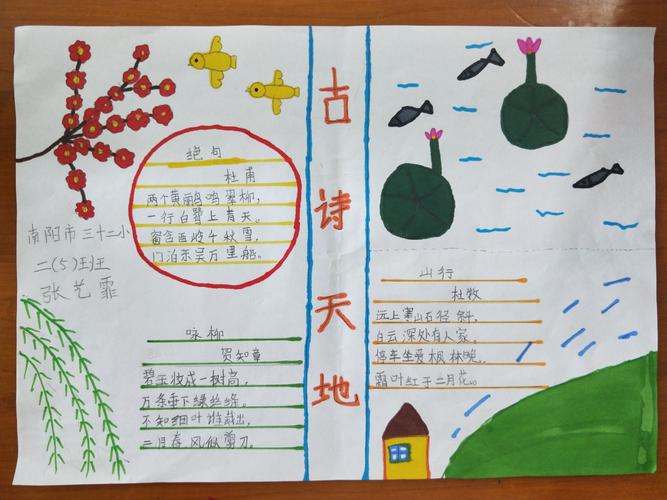 古诗天地
绝句
杜甫
两个黄鹂鸣翠柳,
一行白鹭上青天。
窗含西岭千秋雪,
门泊东吴万里船。
南阳市三十二小
二(5)班
张艺霏
咏柳
贺知章
碧玉妆成一树高,
万条垂下绿丝绦。
不知细叶谁裁出,
二月春风似剪刀。
山行
杜牧
远上寒山石径斜,
白云深处有人家。
停车坐爱枫林晚,
霜叶红于二月花。